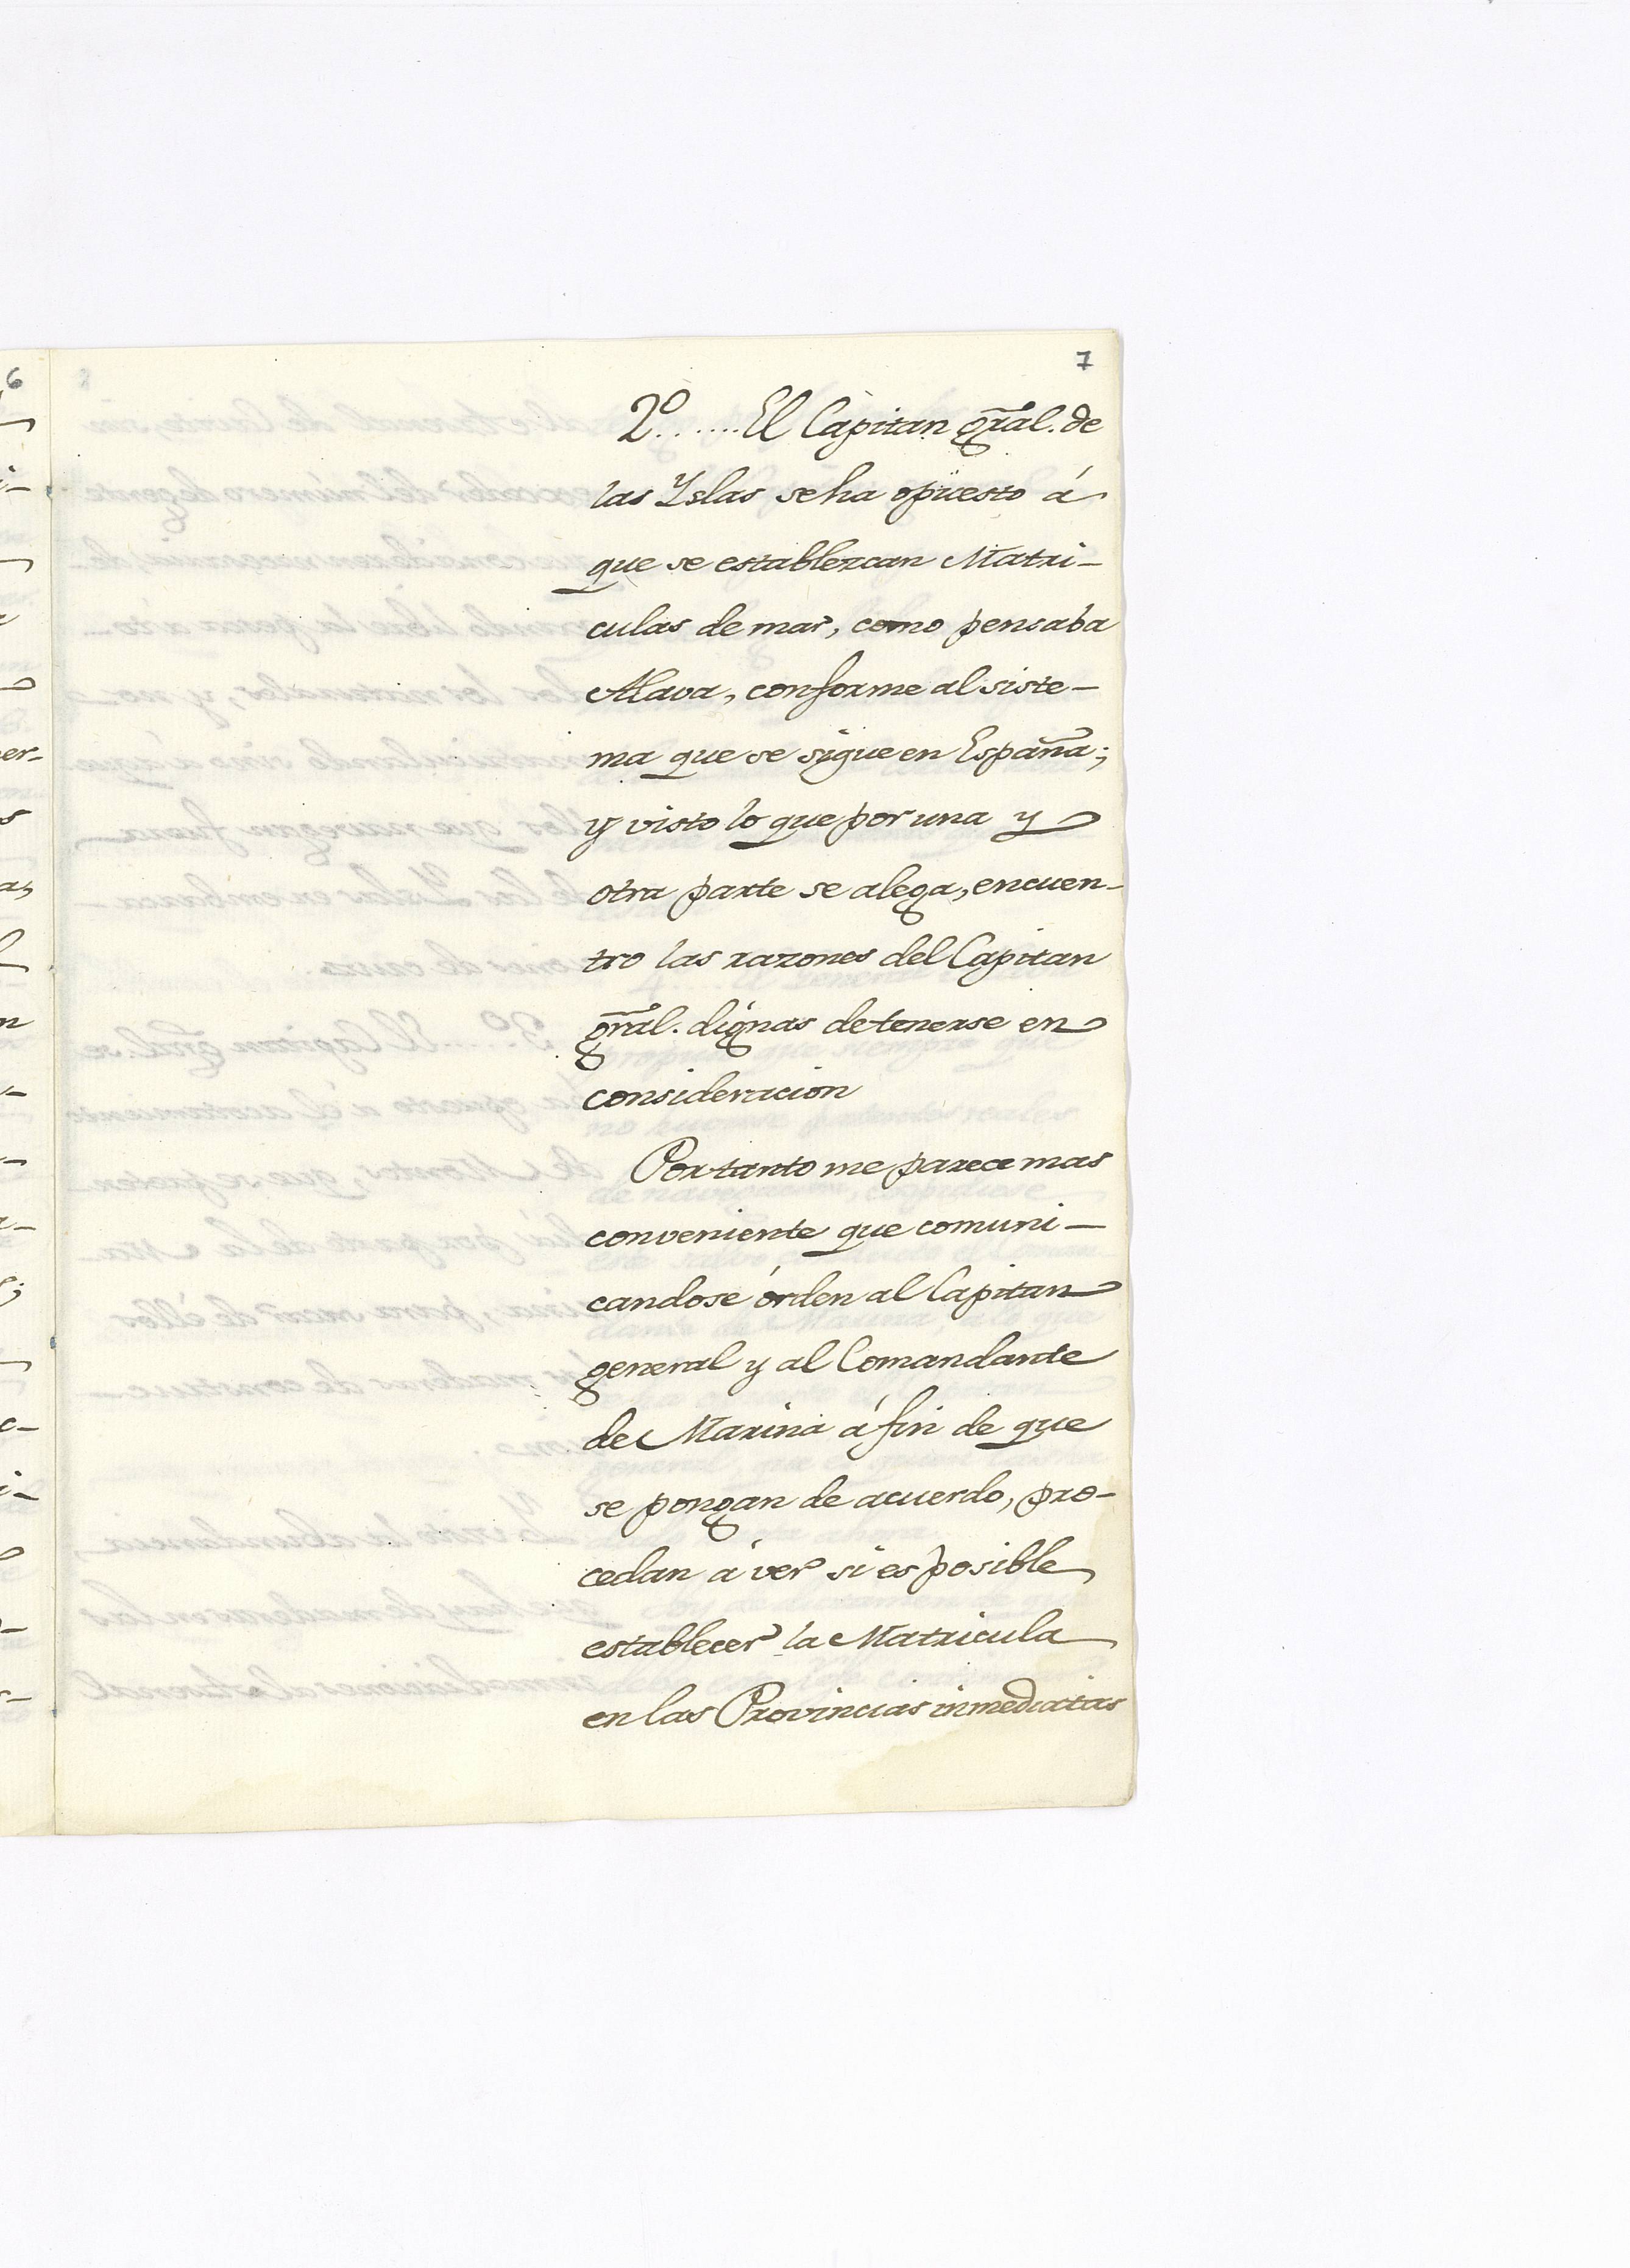 7
2º.......El Capitan gral. de
las Yslas se ha opuesto á
que se establezcan Matri-
culas de mar, como pensaba
Alava, conforme al siste-
ma que se sigue en España;
y visto lo que por una y
otra parte se alega, encuen-
tro las razones del Capitan
gral. dignas de tenerse en
consideracion
Por tanto me parece mas
conveniente que comuni-
candose órden al Capitan
general y al Comandante
de Marina á fin de que
se pongan de acuerdo, pro-
cedan á ver si es posible
establecer la Matricula
en las Provincias inmediatas
6